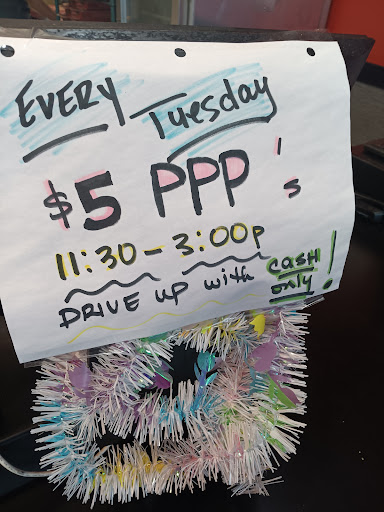 EVERY Tuesday
$5 PPP's
11:30 - 3:00p
DRIVE up with cash only!